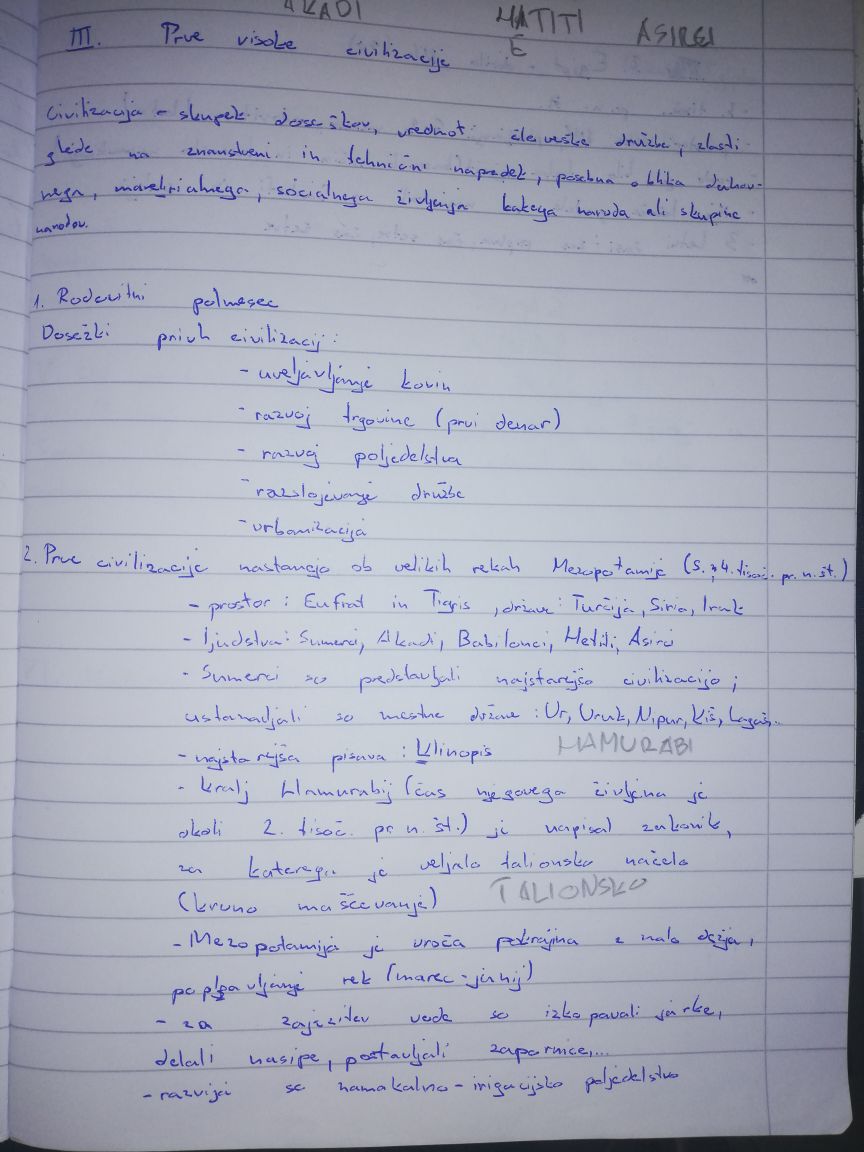 AKADI HATITI ASIRCI
E
III. Prve visoke civilizacije
Civilizacija - skupek dosežkov, vrednot človeške družbe, zlasti
glede na znanstveni in tehnični napredek, posebna oblika duhov-
nega, materialnega, socialnega življenja kakega naroda ali skupine
narodov.
1. Rodovitni polmesec
Dosežki prvih civilizacij:
- uveljavljanje kovin
- razvoj trgovine (prvi denar)
- razvoj poljedelstva
- razslojevanje družbe
- urbanizacija
2. Prve civilizacije nastanejo ob velikih rekah Mezopotamije (5. 4. tisoč. pr. n. št.)
- prostor: Eufrat in Tigris, države: Turčija, Siria, Irak
- ljudstva: Sumerci, Akadi, Babilonci, Hetiti, Asirci
- Sumerci so predstavljali najstarejšo civilizacijo;
ustanavljali so mestne države: Ur, Uruk, Nipur, Kiš, Lagaš..
- najstarejša pisava: Klinopis HAMURABI
- kralj Hamurabij (čas njegovega življena je
okoli 2. tisoč. pr. n. št.) je napisal zakonik,
za katerega je veljalo talionsko načelo
(krvno maščevanje) TALIONSKO
- Mezopotamija je vroča pokrajina z malo dežja,
poplavljanje rek (marec-junij)
- za zajezitev vode so izkopavali jarke,
delali nasipe, postavljali zapornice,...
- razvija se namakalno-irigacijsko poljedelstvo